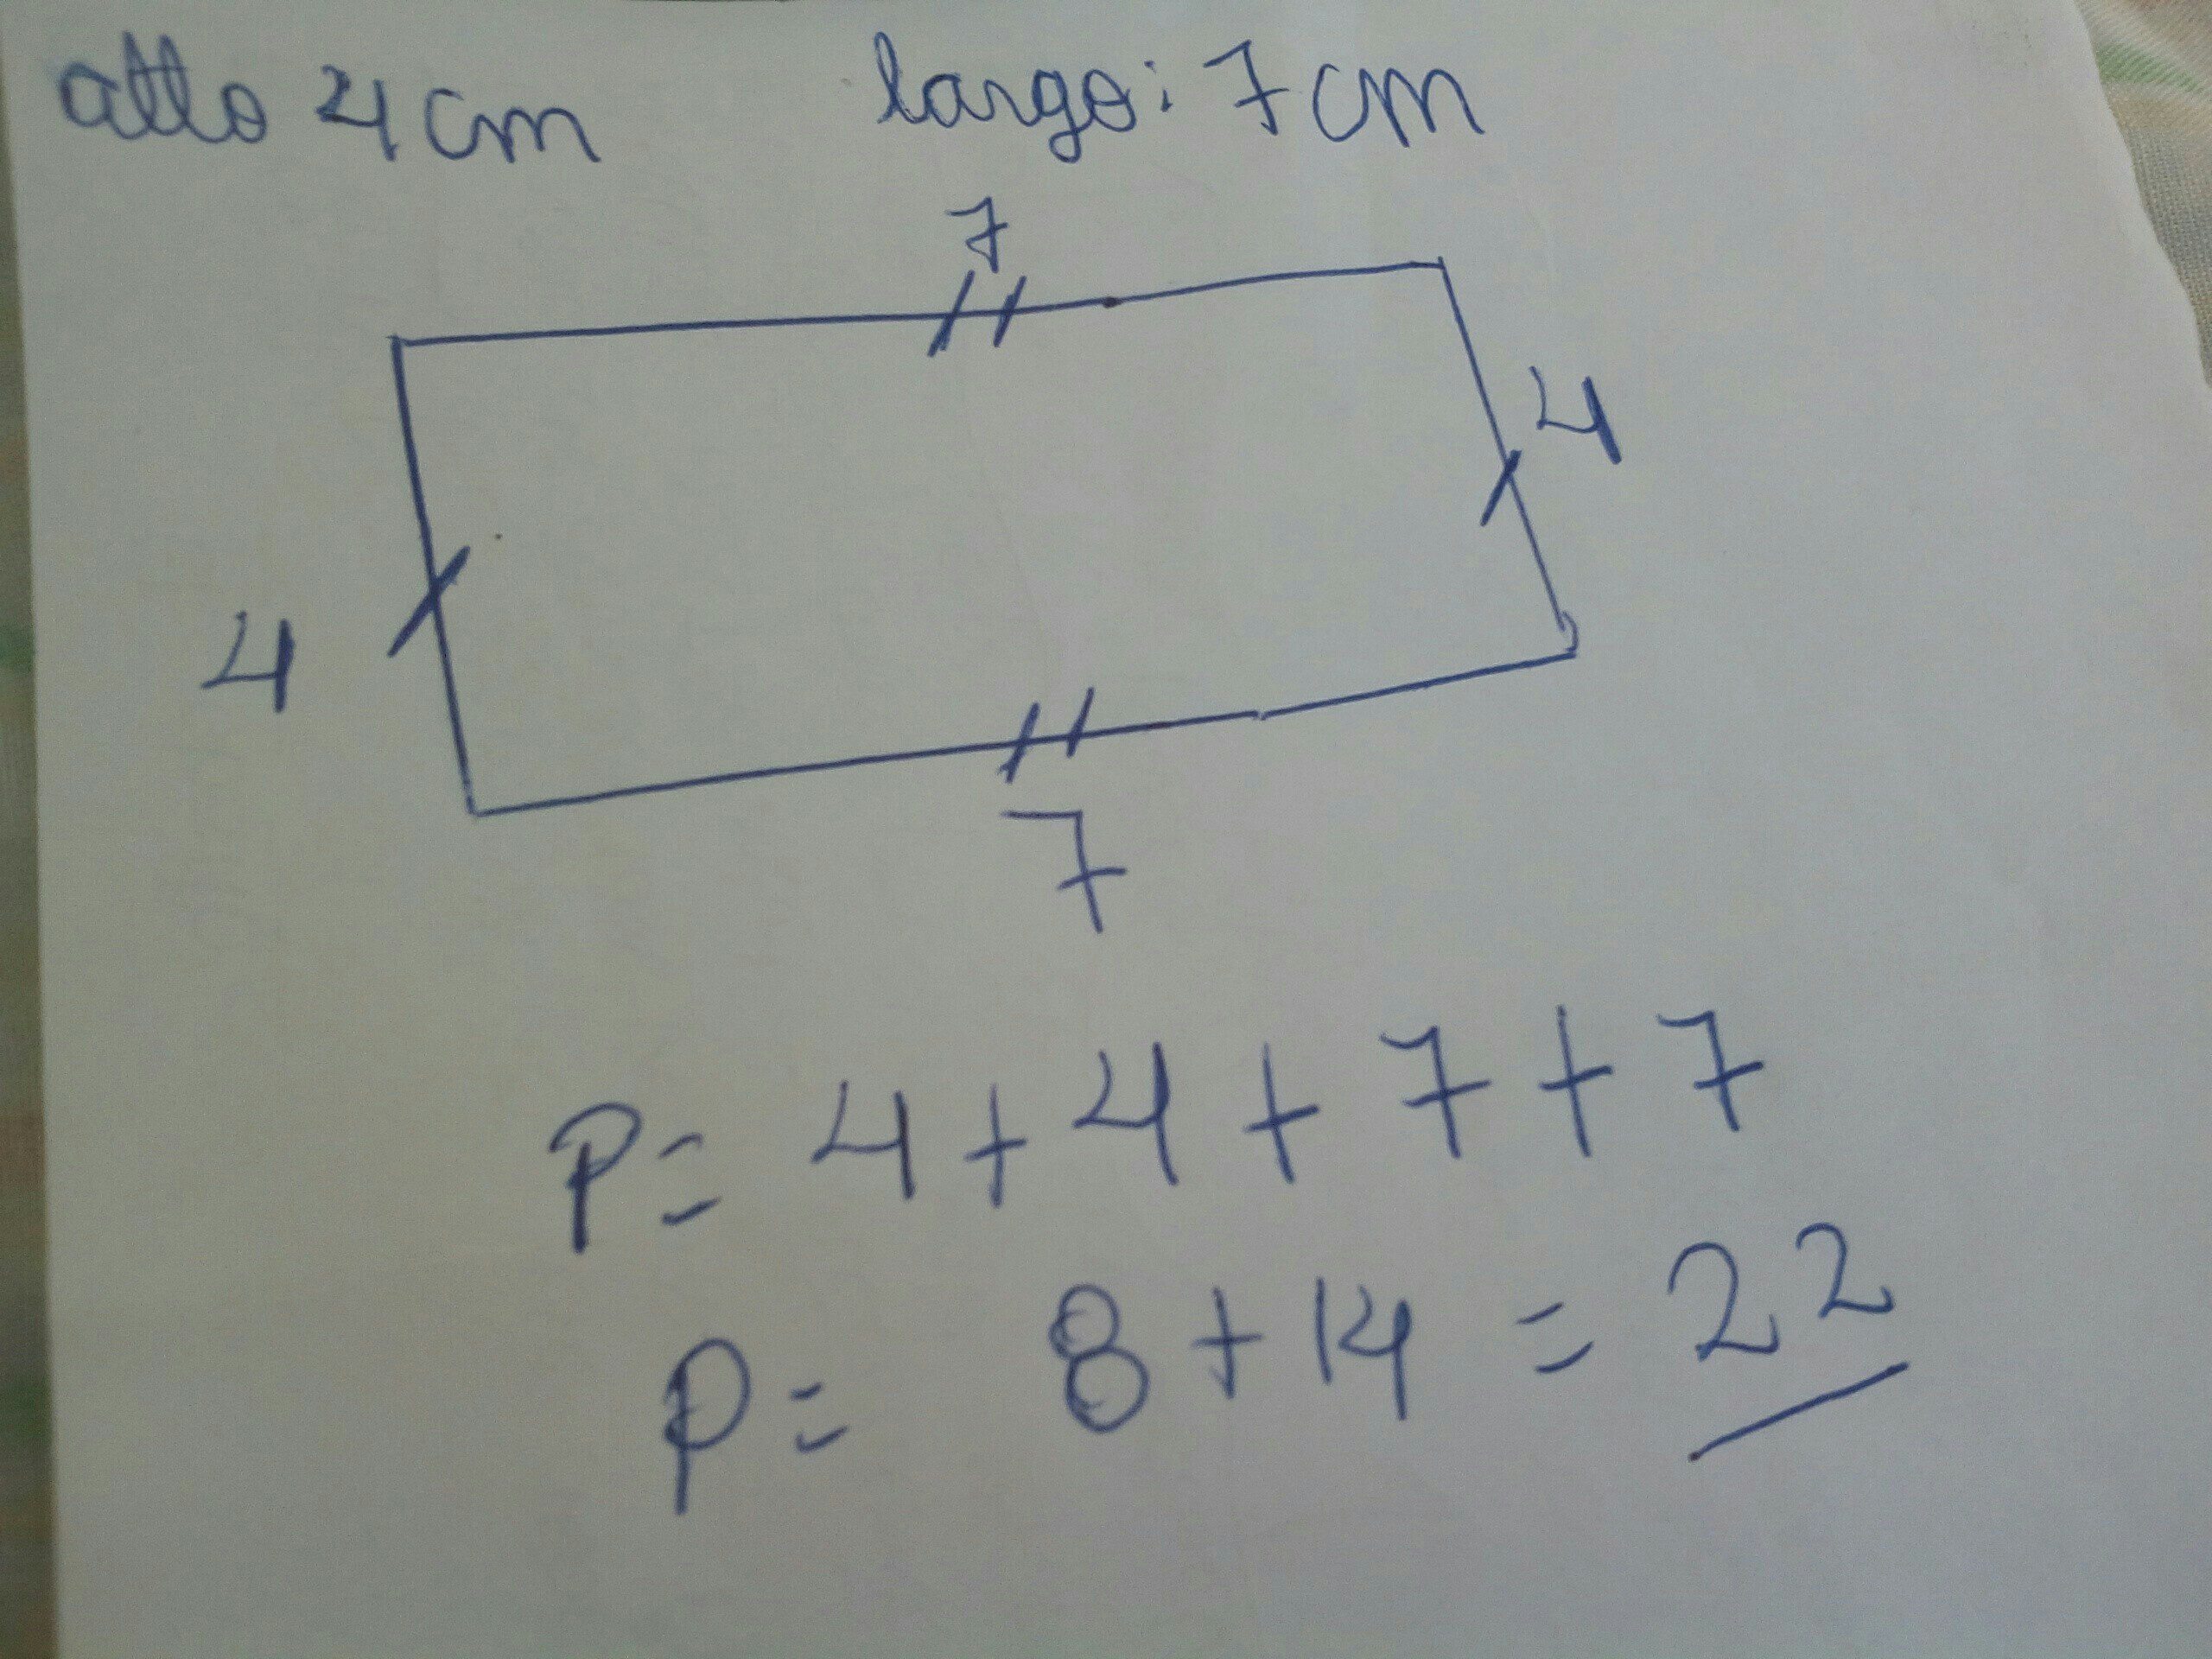 alto 4 cm largo: 7 cm
7
4
4
7
P= 4 + 4 + 7 + 7
P= 8 + 14 = 22